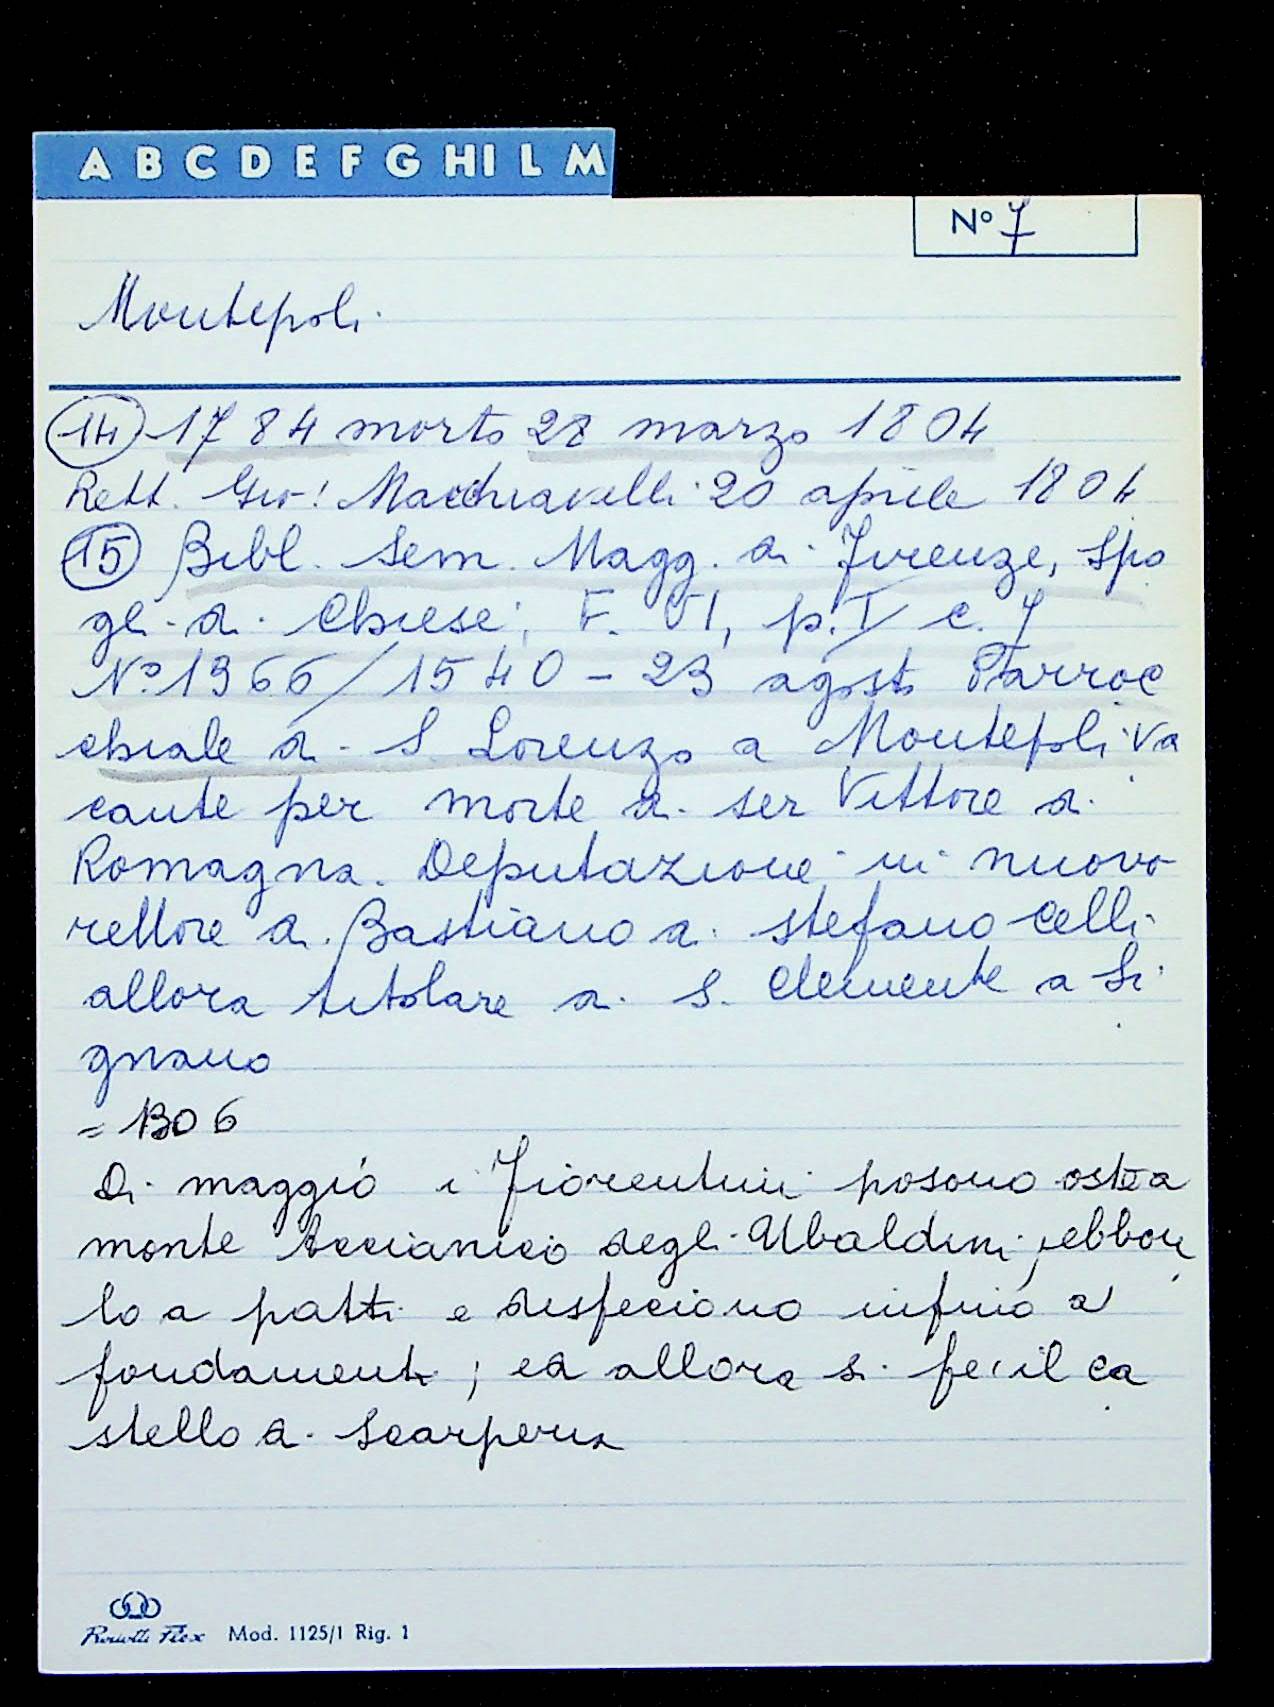 A B C D E F G HI L M
Nº 7
Montepoli
14 1784 morto 28 marzo 1804
Rett. Gio: Macchiavelli 20 aprile 1804
15 Bibl. Sem. Magg. di Firenze, Spo
gli di Chiese, F. VI, p. I c. 7
Nº 1366/1540 - 23 agosto Parroc
chiale di S Lorenzo a Montepoli va
cante per morte di ser Vettore di
Romagna. Deputazione in nuovo
rettore di Bastiano di Stefano Celli
allora titolare di S. Clemente a Si
gnano
= 1306
Di maggio i Fiorentini posono oste a
monte Accianico degli Ubaldini, ebbon
lo a patti e disfeciono infino a
fondamenti; ed allora si fe il ca
stello di Scarperia
Mod. 1125/1 Rig. 1